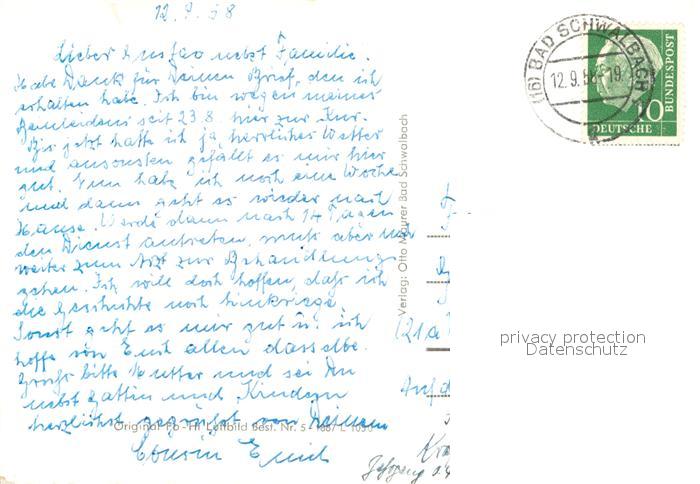 12.9.58
Lieber Gustav nebst Familie.
Habe Dank für Deinen Brief, den ich
erhalten habe. Ich bin wegen meines
seit 23.8. hier zur Kur.
Bis jetzt hatte ich ja herrliches Wetter
und ansonsten gefällt es mir hier
gut. Nun habe ich noch eine Woche
und dann geht es wieder nach
Hause. Werde dann nach 14 Tagen
den Dienst antreten, muß aber noch
weiter zum Arzt zur Behandlung
gehen. Ich will doch hoffen, daß ich
die Geschichte noch hinkriege.
Sonst geht es mir gut u. ich
hoffe von Euch allen dasselbe.
Grüße bitte Mutter und sei Du
nebst Gattin und Kindern
herzlichst gegrüßt von Deinem
Cousin
Original Fo-Hi Luftbild Best. Nr. 5
Verlag: Otto Maurer Bad Schwalbach
(16) BAD SCHWALBACH
12.9.58-19
10
DEUTSCHE
BUNDESPOST
(21a
privacy protection
Datenschutz